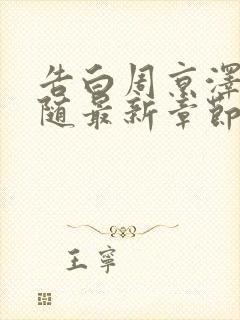 告白周京澤
随最新章節
王寧